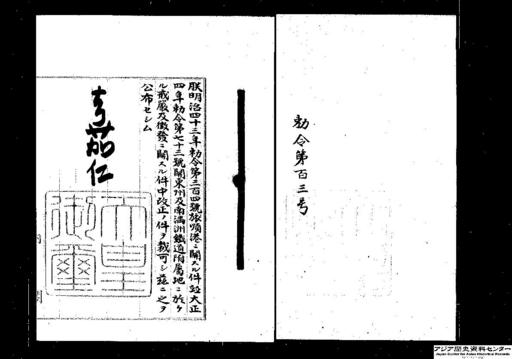 勅令第百三号
朕明治四十三年勅令第三百四號旅順港ニ關スル件竝大正
四年勅令第七十三號關東州及南滿洲鐵道附屬地ニ於ケ
ル戒嚴及徵發ニ關スル件中改正ノ件ヲ裁可シ茲ニ之ヲ
公布セシム
嘉仁
天皇
御璽
アジア歴史資料センター
Japan Center for Asian Historical Records